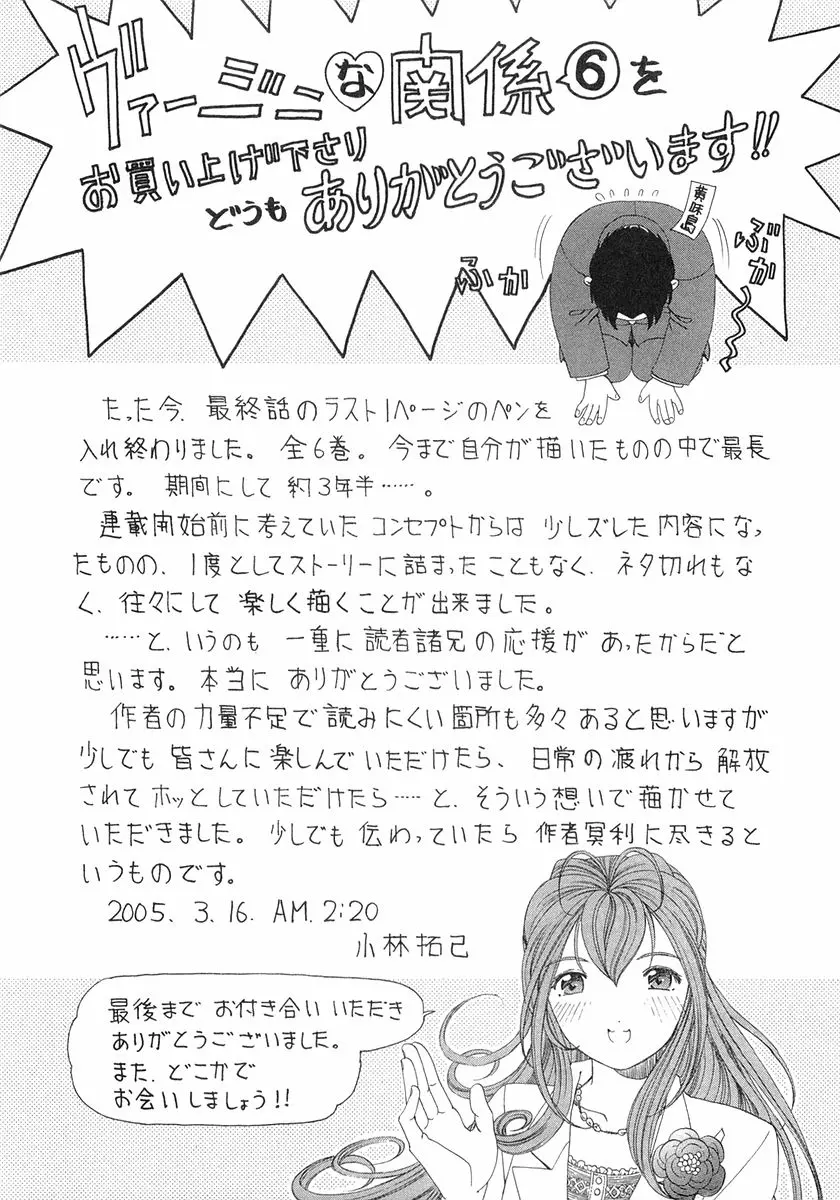 ヴァージンな関係⑥を
お買い上げ下さり
どうもありがとうございます!!
黄味島
ぶか
ふか
たった今、最終話のラスト1ページのペンを
入れ終わりました。全6巻。今まで自分が描いたものの中で最長
です。期間にして約3年半……。
連載開始前に考えていたコンセプトからは少しズレた内容になっ
たものの、1度としてストーリーに詰まったこともなく、ネタ切れもな
く、往々にして楽しく描くことが出来ました。
……と、いうのも一重に読者諸兄の応援があったからだと
思います。本当にありがとうございました。
作者の力量不足で読みにくい箇所も多々あると思いますが
少しでも皆さんに楽しんでいただけたら、日常の疲れから解放
されてホッとしていただけたら……と、そういう想いで描かせて
いただきました。少しでも伝わっていたら作者冥利に尽きると
いうものです。
2005. 3.16. AM.2:20
小林拓己
最後までお付き合いいただき
ありがとうございました。
また、どこかで
お会いしましょう!!